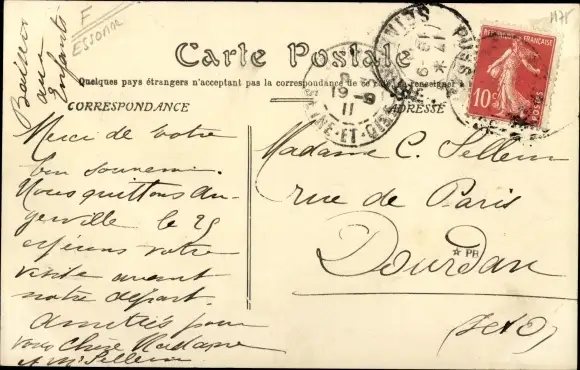 F
ESSONNE
1175
Baisers
aux
Enfants
Carte Postale
Quelques pays étrangers n'acceptant pas la correspondance de se renseigner à
CORRESPONDANCE
ADRESSE
REPUBLIQUE FRANÇAISE
10c
POSTES
19-9
11
SEINE-ET-OISE
Merci de votre
bon souvenir.
Nous quittons An-
gerville le 25
espérons votre
visite avant
notre départ.
Amitiés pour
vous Chère Madame
et Mr Sellern
Madame C. Sellern
rue de Paris
PR
Dourdan
(S et O)